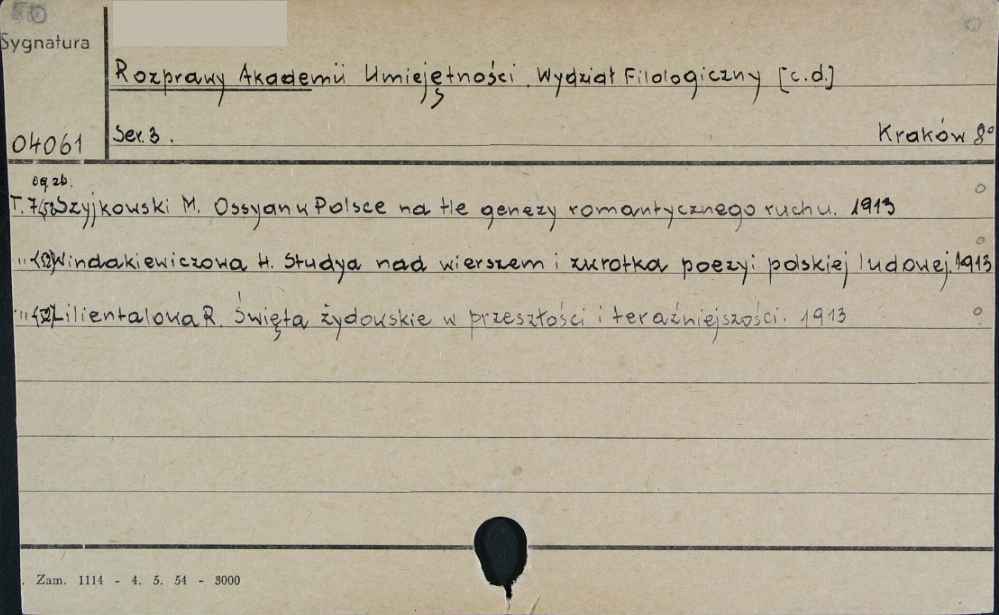 Sygnatura
Rozprawy Akademii Umiejętności. Wydział Filologiczny [c.d.]
04061
Ser. 3.
Kraków 8°
og. zb.
T. 7 Szyjkowski M. Ossyan w Polsce na tle genezy romantycznego ruchu. 1913
" Windakiewiczowa H. Studya nad wierszem i zwrotką poezyi polskiej ludowej. 1913
" Lilientalowa R. Święta żydowskie w przeszłości i teraźniejszości. 1913
Zam. 1114 - 4. 5. 54 - 3000